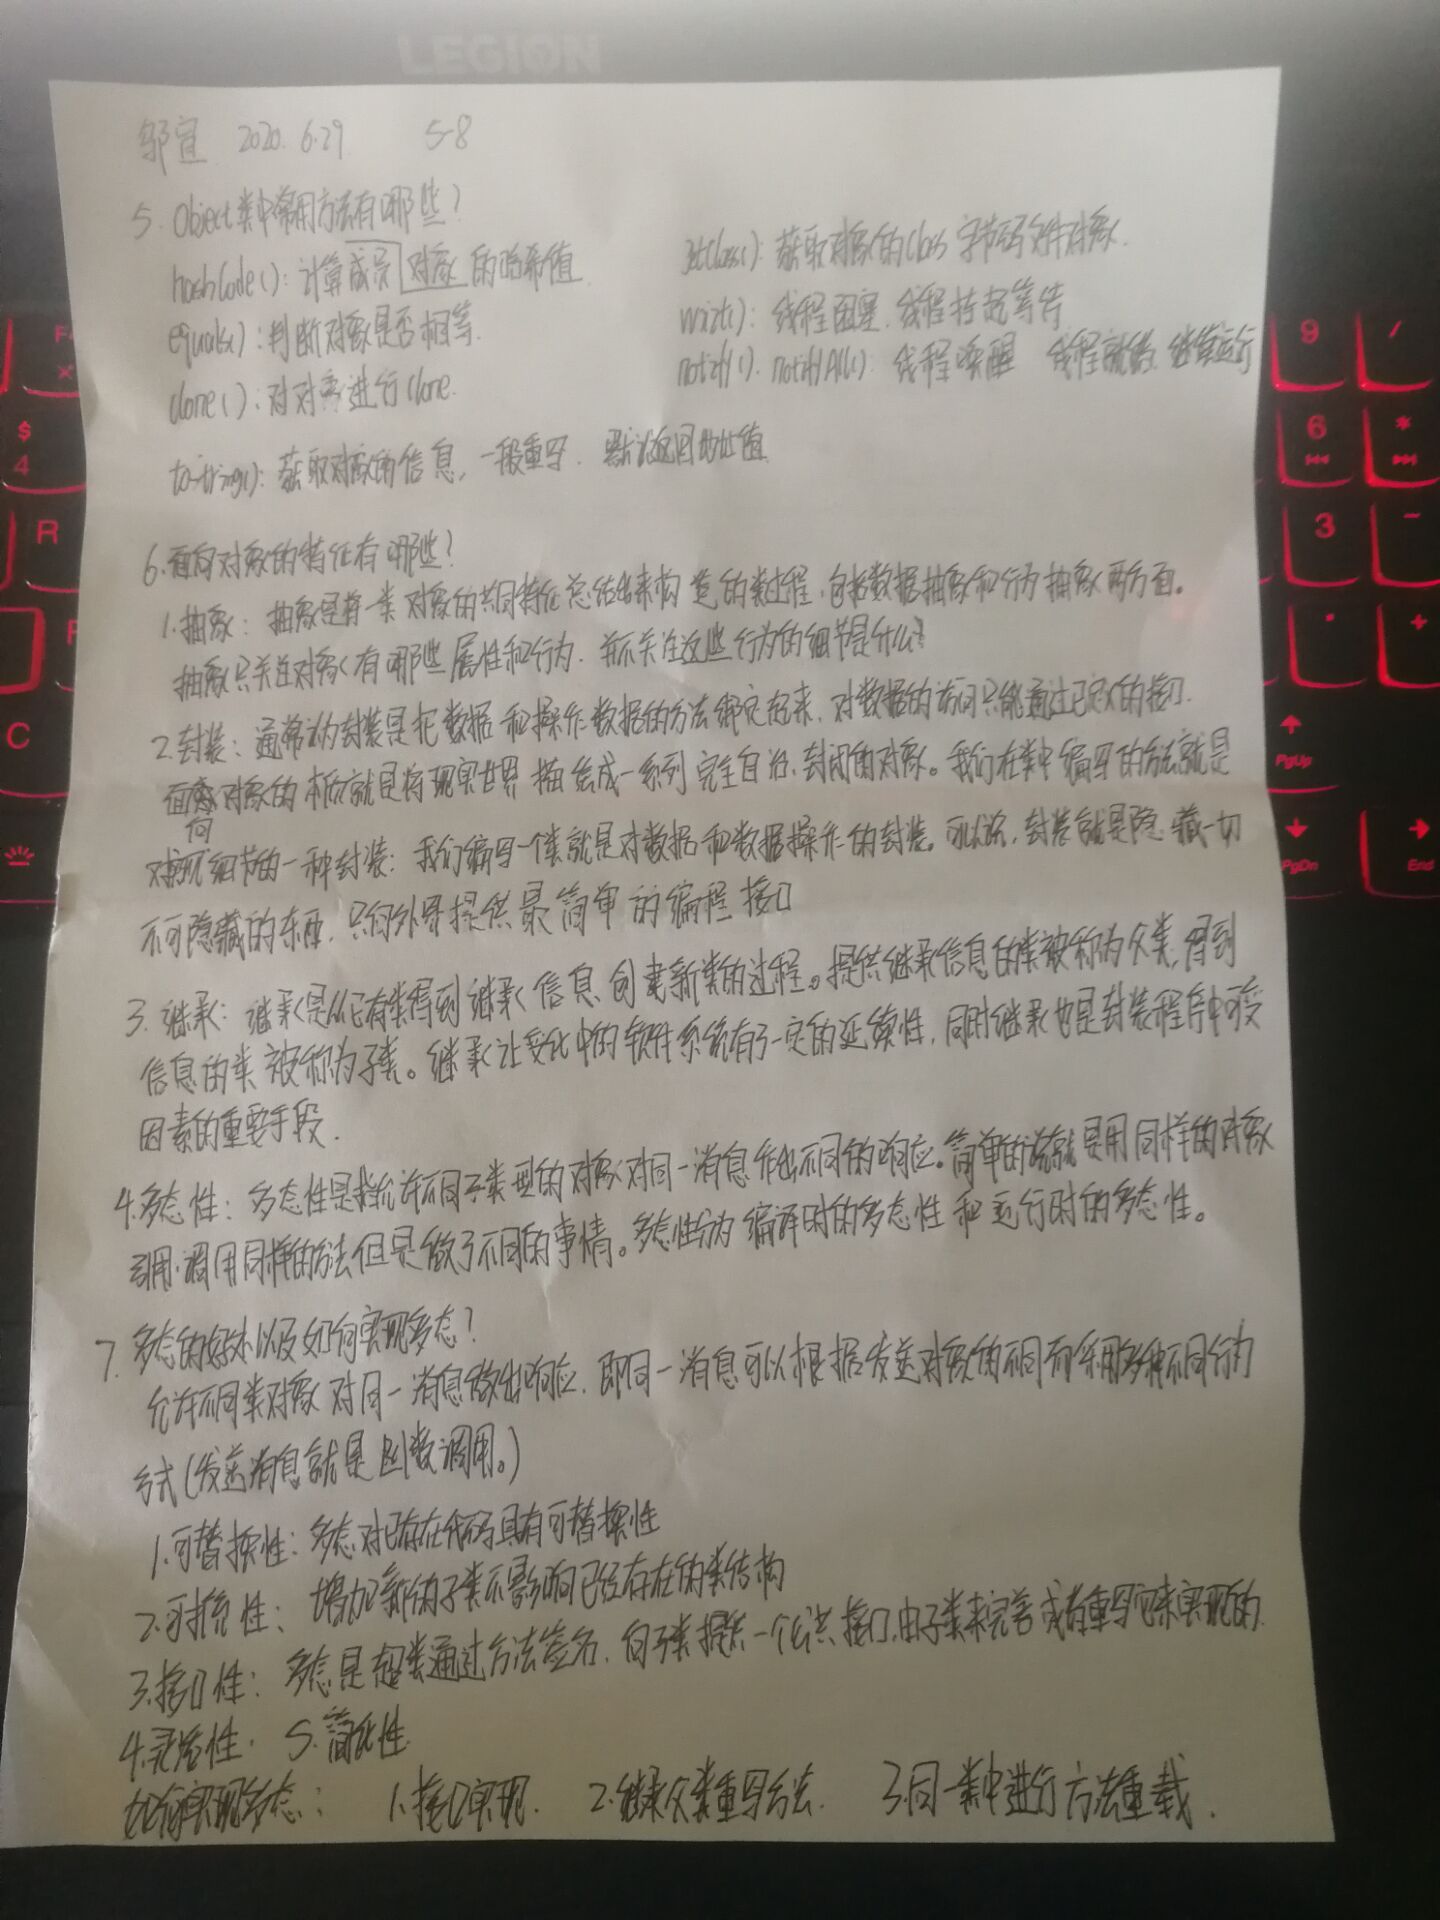 LEGION
邹宜 2020.6.29 5-8
5. Object类中常用方法有哪些?
hashCode(): 计算成员对象的哈希值
getClass(): 获取对象的Class 字节码文件对象.
equals(): 判断对象是否相等.
wait(): 线程阻塞. 线程挂起等待
clone(): 对对象进行clone.
notify(). notifyAll(): 线程唤醒 线程就绪. 继续运行
toString(): 获取对象的信息, 一般重写. 默认返回地址值
6. 面向对象的特征有哪些?
1.抽象: 抽象是将一类对象的共同特征总结出来构造的类过程, 包括数据抽象和行为抽象两方面。
抽象只关注对象有哪些属性和行为. 并不关注这些行为的细节是什么?
2.封装: 通常认为封装是把数据和操作数据的方法绑定起来, 对数据的访问只能通过已定义的接口.
面向对象的本质就是将现实世界描绘成一系列完全自治、封闭的对象。我们在类中编写的方法就是
对实现细节的一种封装: 我们编写一个类就是对数据和数据操作的封装。可以说, 封装就是隐藏一切
不可隐藏的东西, 只向外界提供最简单的编程接口
3. 继承: 继承是从已有类得到继承信息创建新类的过程。提供继承信息的类被称为父类, 得到
信息的类被称为子类。继承让变化中的软件系统有了一定的延续性, 同时继承也是封装程序中可变
因素的重要手段.
4.多态性: 多态性是指允许不同子类型的对象对同一消息作出不同的响应。简单的说就是用同样的对象
引用. 调用同样的方法但是做了不同的事情。多态性分为编译时的多态性和运行时的多态性。
7. 多态的好处以及如何实现多态?
允许不同类对象对同一消息做出响应, 即同一消息可以根据发送对象的不同而采用多种不同行为
方式(发送消息就是函数调用。)
1.可替换性: 多态对已存在代码具有可替换性
2.可扩充性: 增加新的子类不影响已经存在的类结构
3.接口性: 多态是超类通过方法签名, 向子类提供一个公共接口, 由子类来完善或者重写它来实现的.
4.灵活性. 5.简化性
如何实现多态: 1.接口实现. 2.继承父类重写方法. 3.同一类中进行方法重载.
9 /
$ 4 6 *
R 3 -
. +
C PgUp
PgDn End